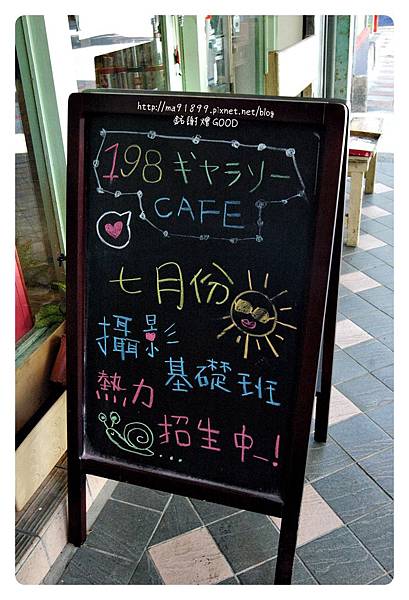 http://ma91899.pixnet.net/blog
198ギャラソー
CAFE
七月份
攝影
基礎班
熱力
招生中~!